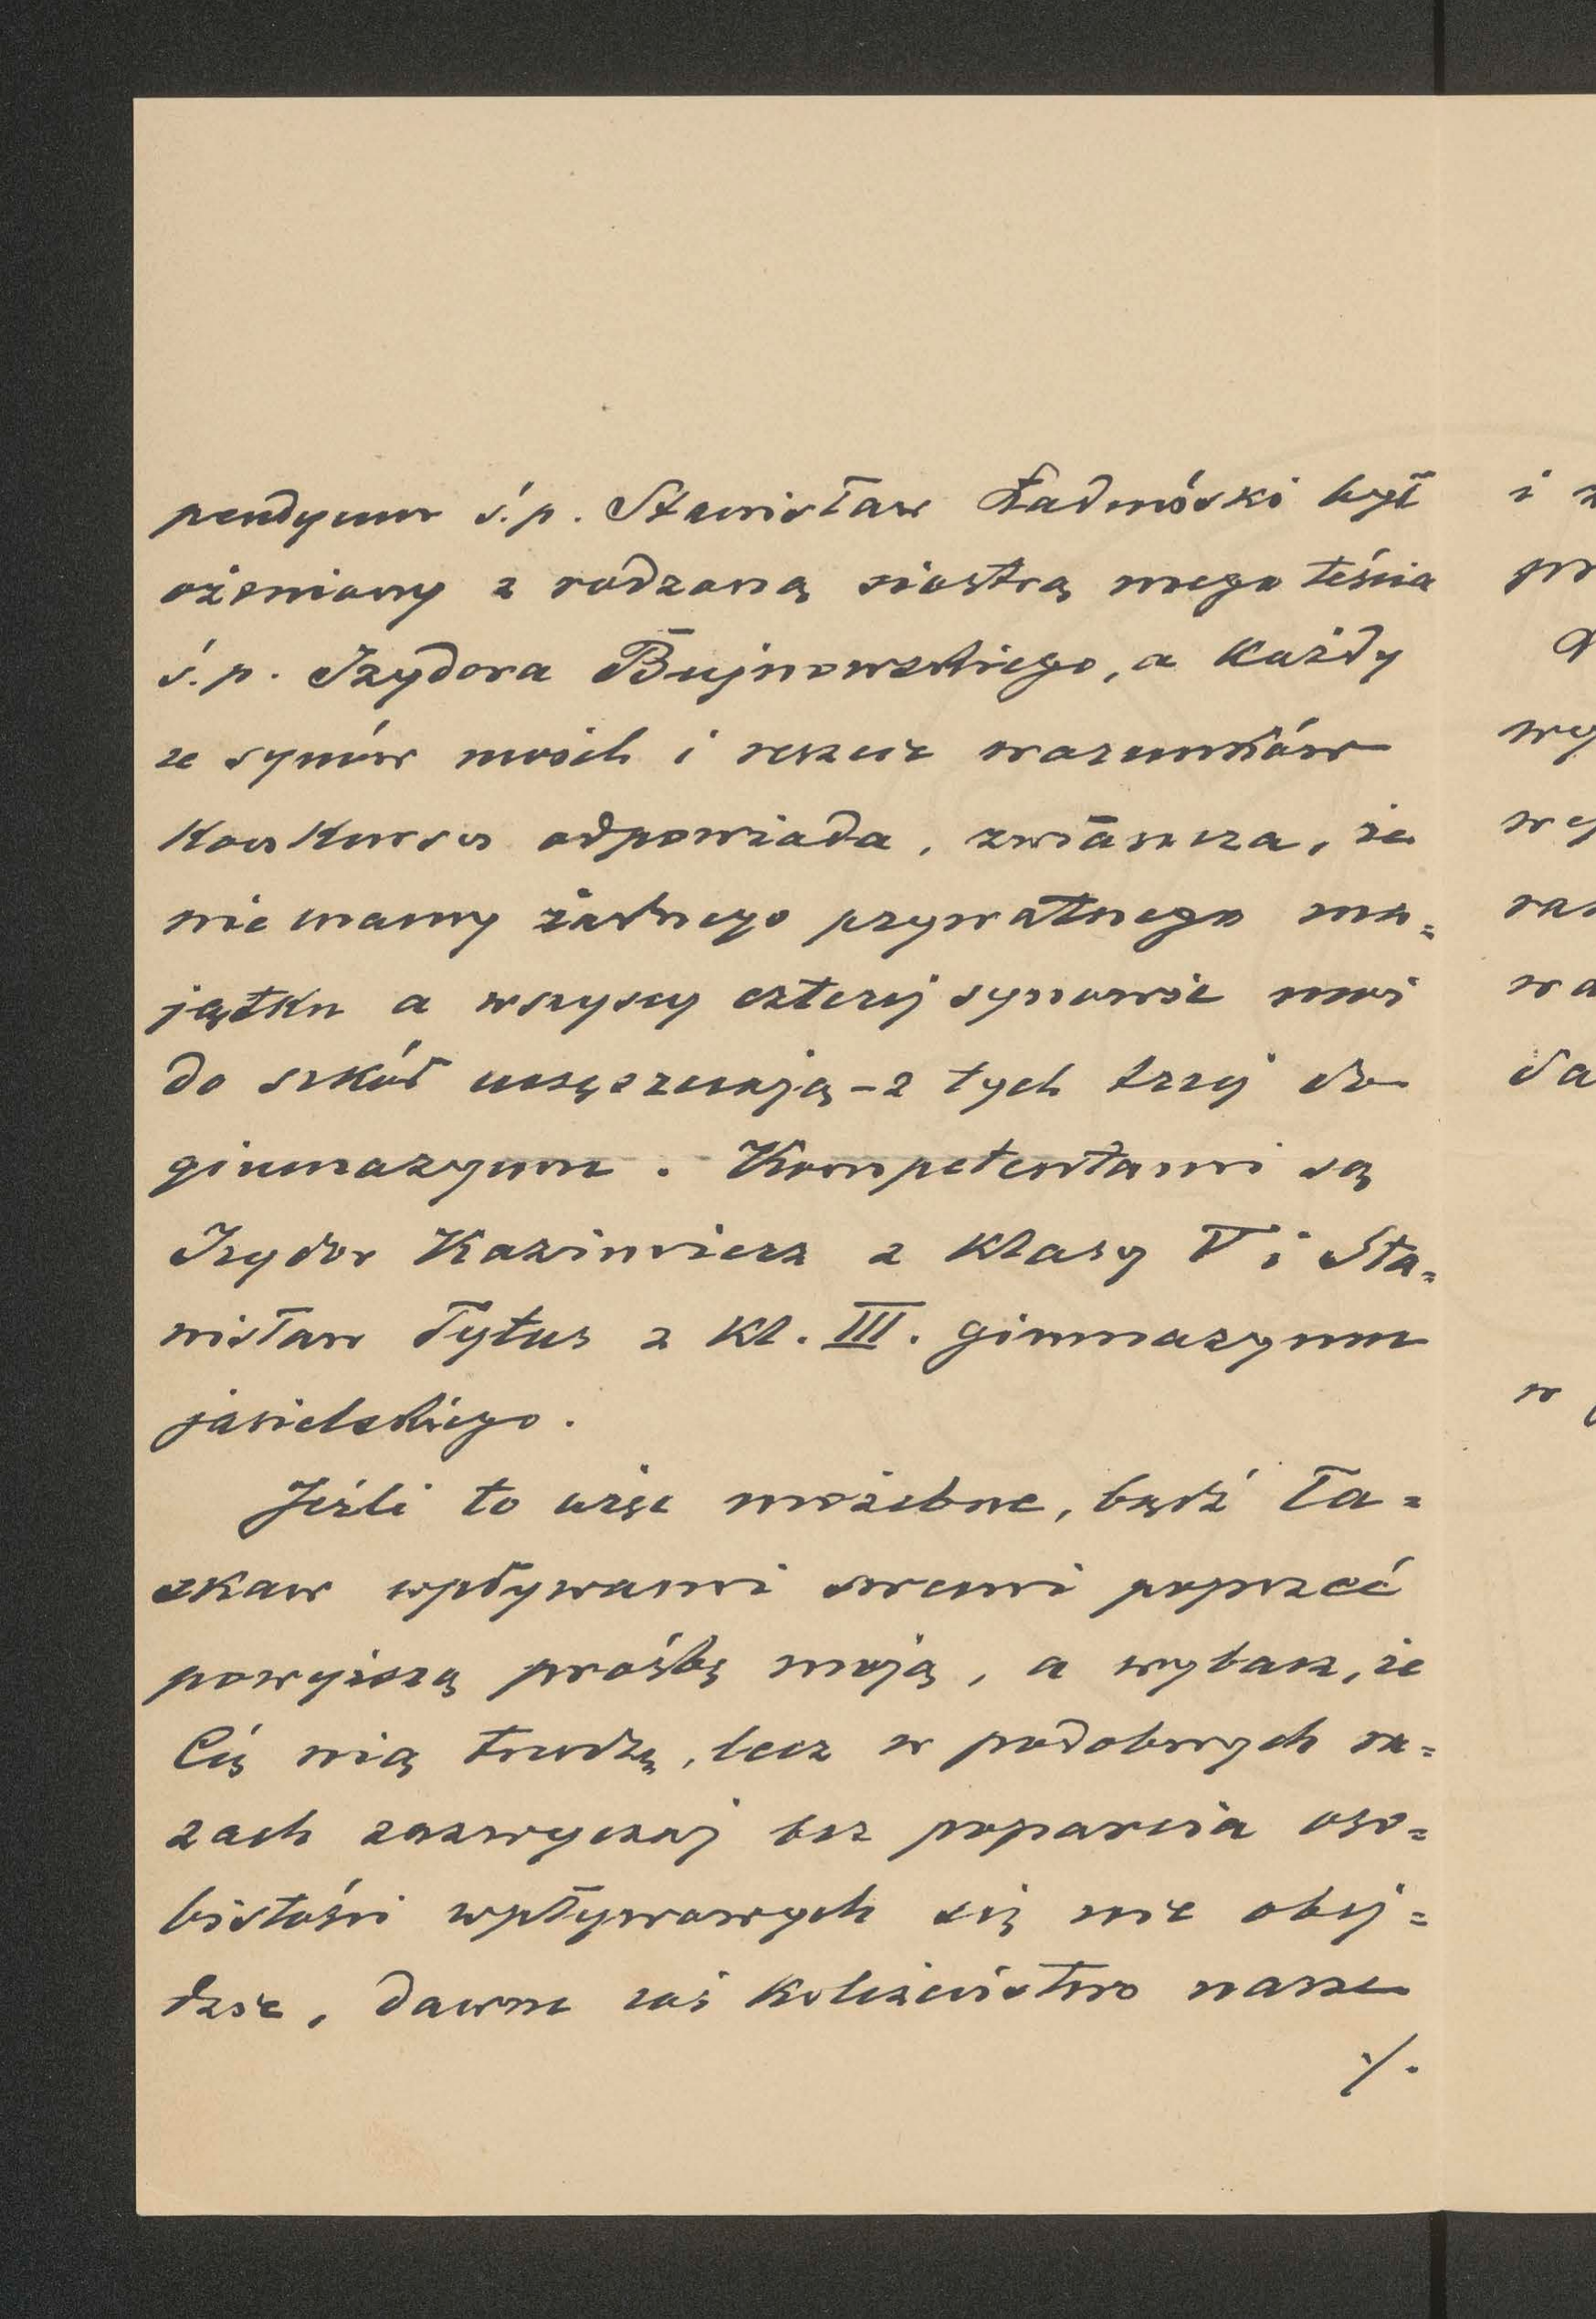 pendyum ś.p. Stanisław Ładnóski był
ożeniony z rodzoną siostrą mego teścia
ś.p. Izydora Bujnowskiego, a każdy
ze synów moich i reszcie warunków
konkursu odpowiada, zwłaszcza, że
nie mamy żadnego prywatnego ma=
jątku a wszyscy czterej synowie moi
do szkół uczęszczają – z tych trzej do
gimnazyum. Kompetentami są
Izydor Kazimierz z klasy V i Sta=
nisław Tytus z kl. III. gimnazyum
jasielskiego.
Jeźli to więc możebne, bądź ła=
skaw wpływami swemi poprzeć
powyższą prośbę moją, a wybacz, że
Cię nią trudzę, lecz w podobnych ra=
zach zazwyczaj bez poparcia oso=
bistości wpływowych się nie obej=
dzie, dawne zaś koleżeństwo nasze
./.
i
pr
wy
wy
raz
wa
da
w